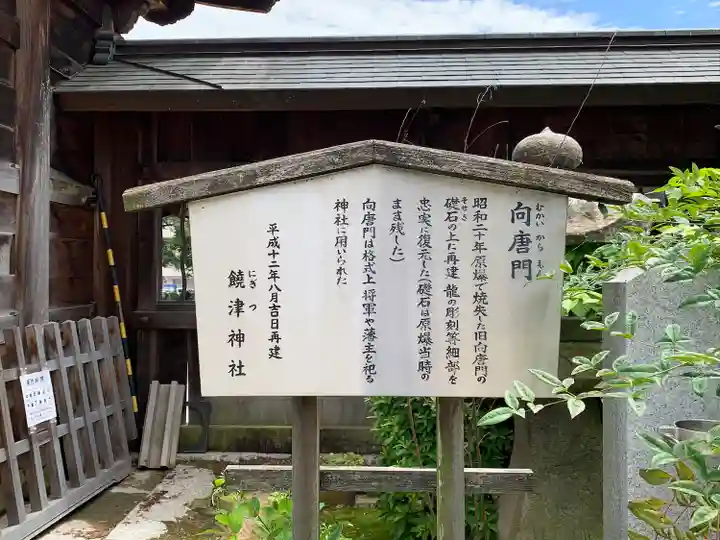 むかい から もん
向唐門
昭和二十年原爆で焼失した旧向唐門の
そせき
礎石の上に再建 龍の彫刻等細部を
忠実に復元した(礎石は原爆当時の
まま残した)
向唐門は格式上 将軍や藩主を祀る
神社に用いられた
平成十二年八月吉日再建
にぎつ
饒津神社